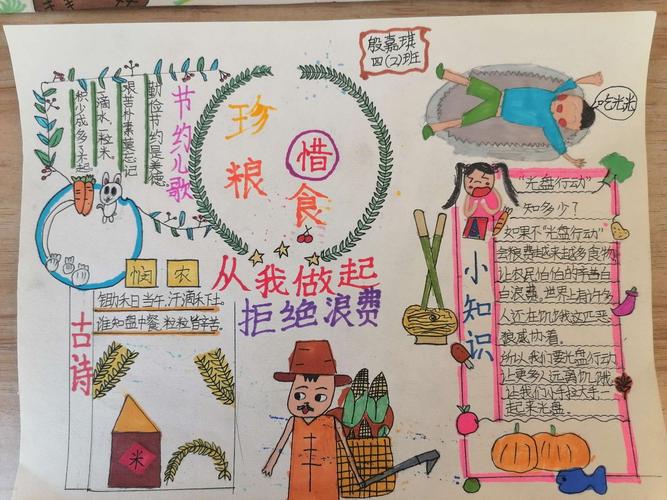 殷嘉琪
四(2)班
节约儿歌
勤俭节约是美德
艰苦朴素莫忘记
一滴水一粒米
积少成多了不起
珍惜
粮食
从我做起
拒绝浪费
古诗
悯农
锄禾日当午,汗滴禾下土
谁知盘中餐 粒粒皆辛苦.
米
丰
小知识
“光盘行动”
知多少?
如果不“光盘行动”
会浪费越来越多食物,
让农民伯伯的辛苦白
白浪费。世界上有许多
人还在饥饿
狼威协着。
所以我们要光盘行动
让更多人远离饥饿
让我们小手拉大手
一起来光盘。